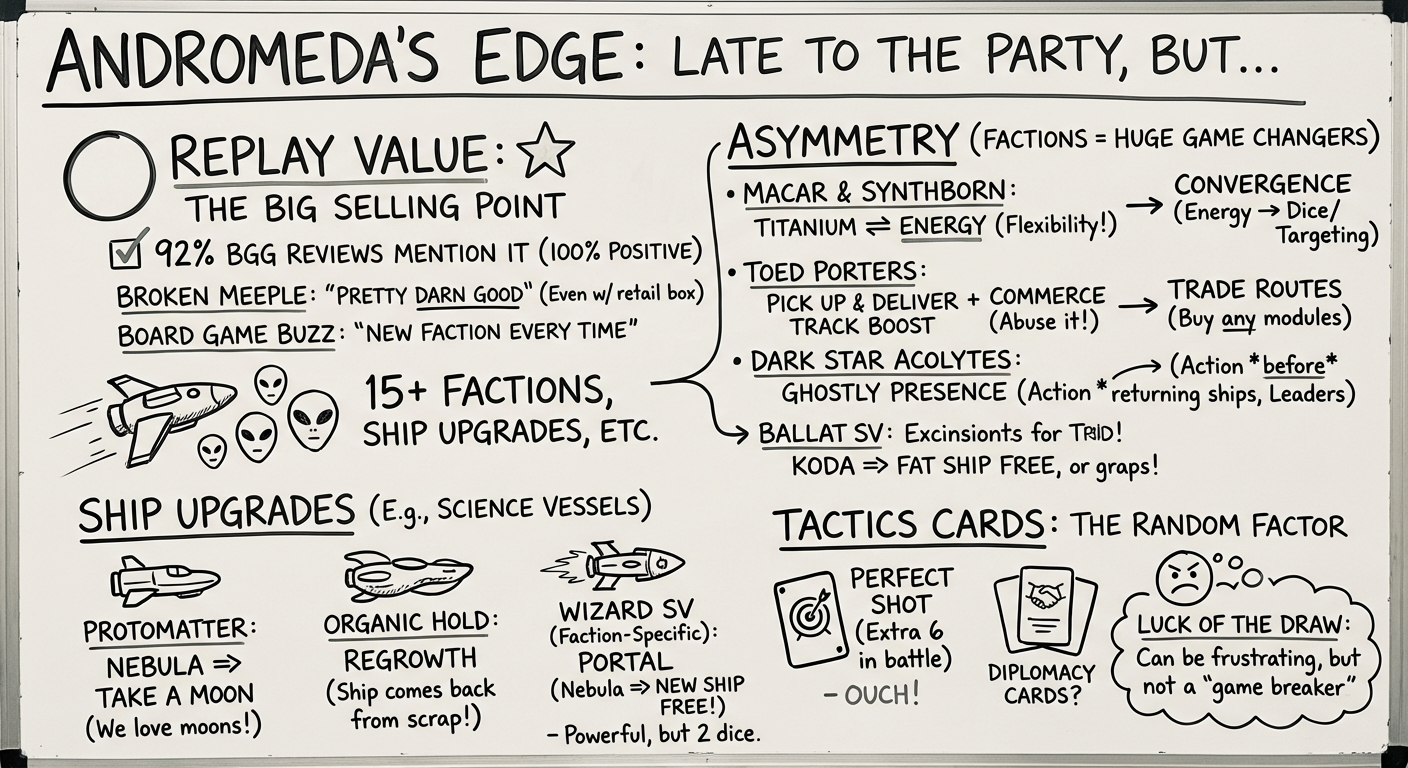 ANDROMEDA'S EDGE: LATE TO THE PARTY, BUT...
REPLAY VALUE:
THE BIG SELLING POINT
92% BGG REVIEWS MENTION IT (100% POSITIVE)
BROKEN MEEPLE: "PRETTY DARN GOOD" (Even w/ retail box)
BOARD GAME BUZZ: "NEW FACTION EVERY TIME"
15+ FACTIONS,
SHIP UPGRADES, ETC.
ASYMMETRY (FACTIONS = HUGE GAME CHANGERS)
• MACAR & SYNTHBORN:
TITANIUM ⇌ ENERGY (Flexibility!) →
CONVERGENCE
(Energy → Dice/
Targeting)
• TOED PORTERS:
PICK UP & DELIVER + COMMERCE →
TRACK BOOST (Abuse it!)
TRADE ROUTES
(Buy any modules)
• DARK STAR ACOLYTES:
→ (Action *before*
GHOSTLY PRESENCE (Action *returning ships, Leaders)
BALLAT SV: Excinsionts for !
KODA ⇒ FAT SHIP FREE, or graps!
SHIP UPGRADES (E.g., SCIENCE VESSELS)
PROTOMATTER:
NEBULA ⇒
TAKE A MOON
(We love moons!)
ORGANIC HOLD:
REGROWTH
(Ship comes back
from scrap!)
WIZARD SV
(Faction-Specific):
PORTAL
(Nebula ⇒ NEW SHIP
FREE!)
– Powerful, but 2 dice.
TACTICS CARDS: THE RANDOM FACTOR
PERFECT
SHOT
(Extra 6
in battle)
– OUCH!
DIPLOMACY
CARDS?
LUCK OF THE DRAW:
Can be frustrating, but
not a "game breaker"